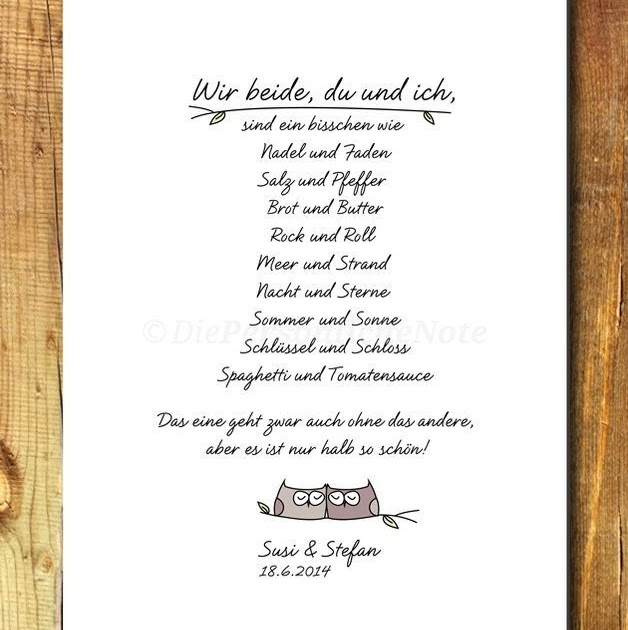 Wir beide, du und ich,
sind ein bisschen wie
Nadel und Faden
Salz und Pfeffer
Brot und Butter
Rock und Roll
Meer und Strand
Nacht und Sterne
Sommer und Sonne
©DiePersönlicheNote
Schlüssel und Schloss
Spaghetti und Tomatensauce
Das eine geht zwar auch ohne das andere,
aber es ist nur halb so schön!
Susi & Stefan
18.6.2014